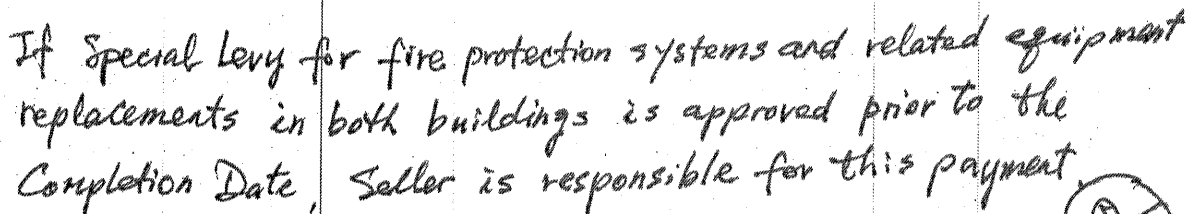 If Special Levy for fire protection systems and related equipment
replacements in both buildings is approved prior to the
Completion Date, Seller is responsible for this payment.